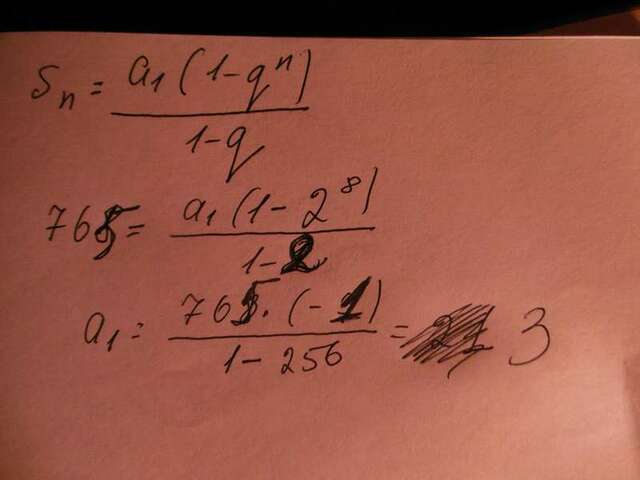 Sn = a1(1-q^n) / 1-q
765 = a1(1-2^8) / 1-2
a1 = 765·(-1) / 1-256 = 3